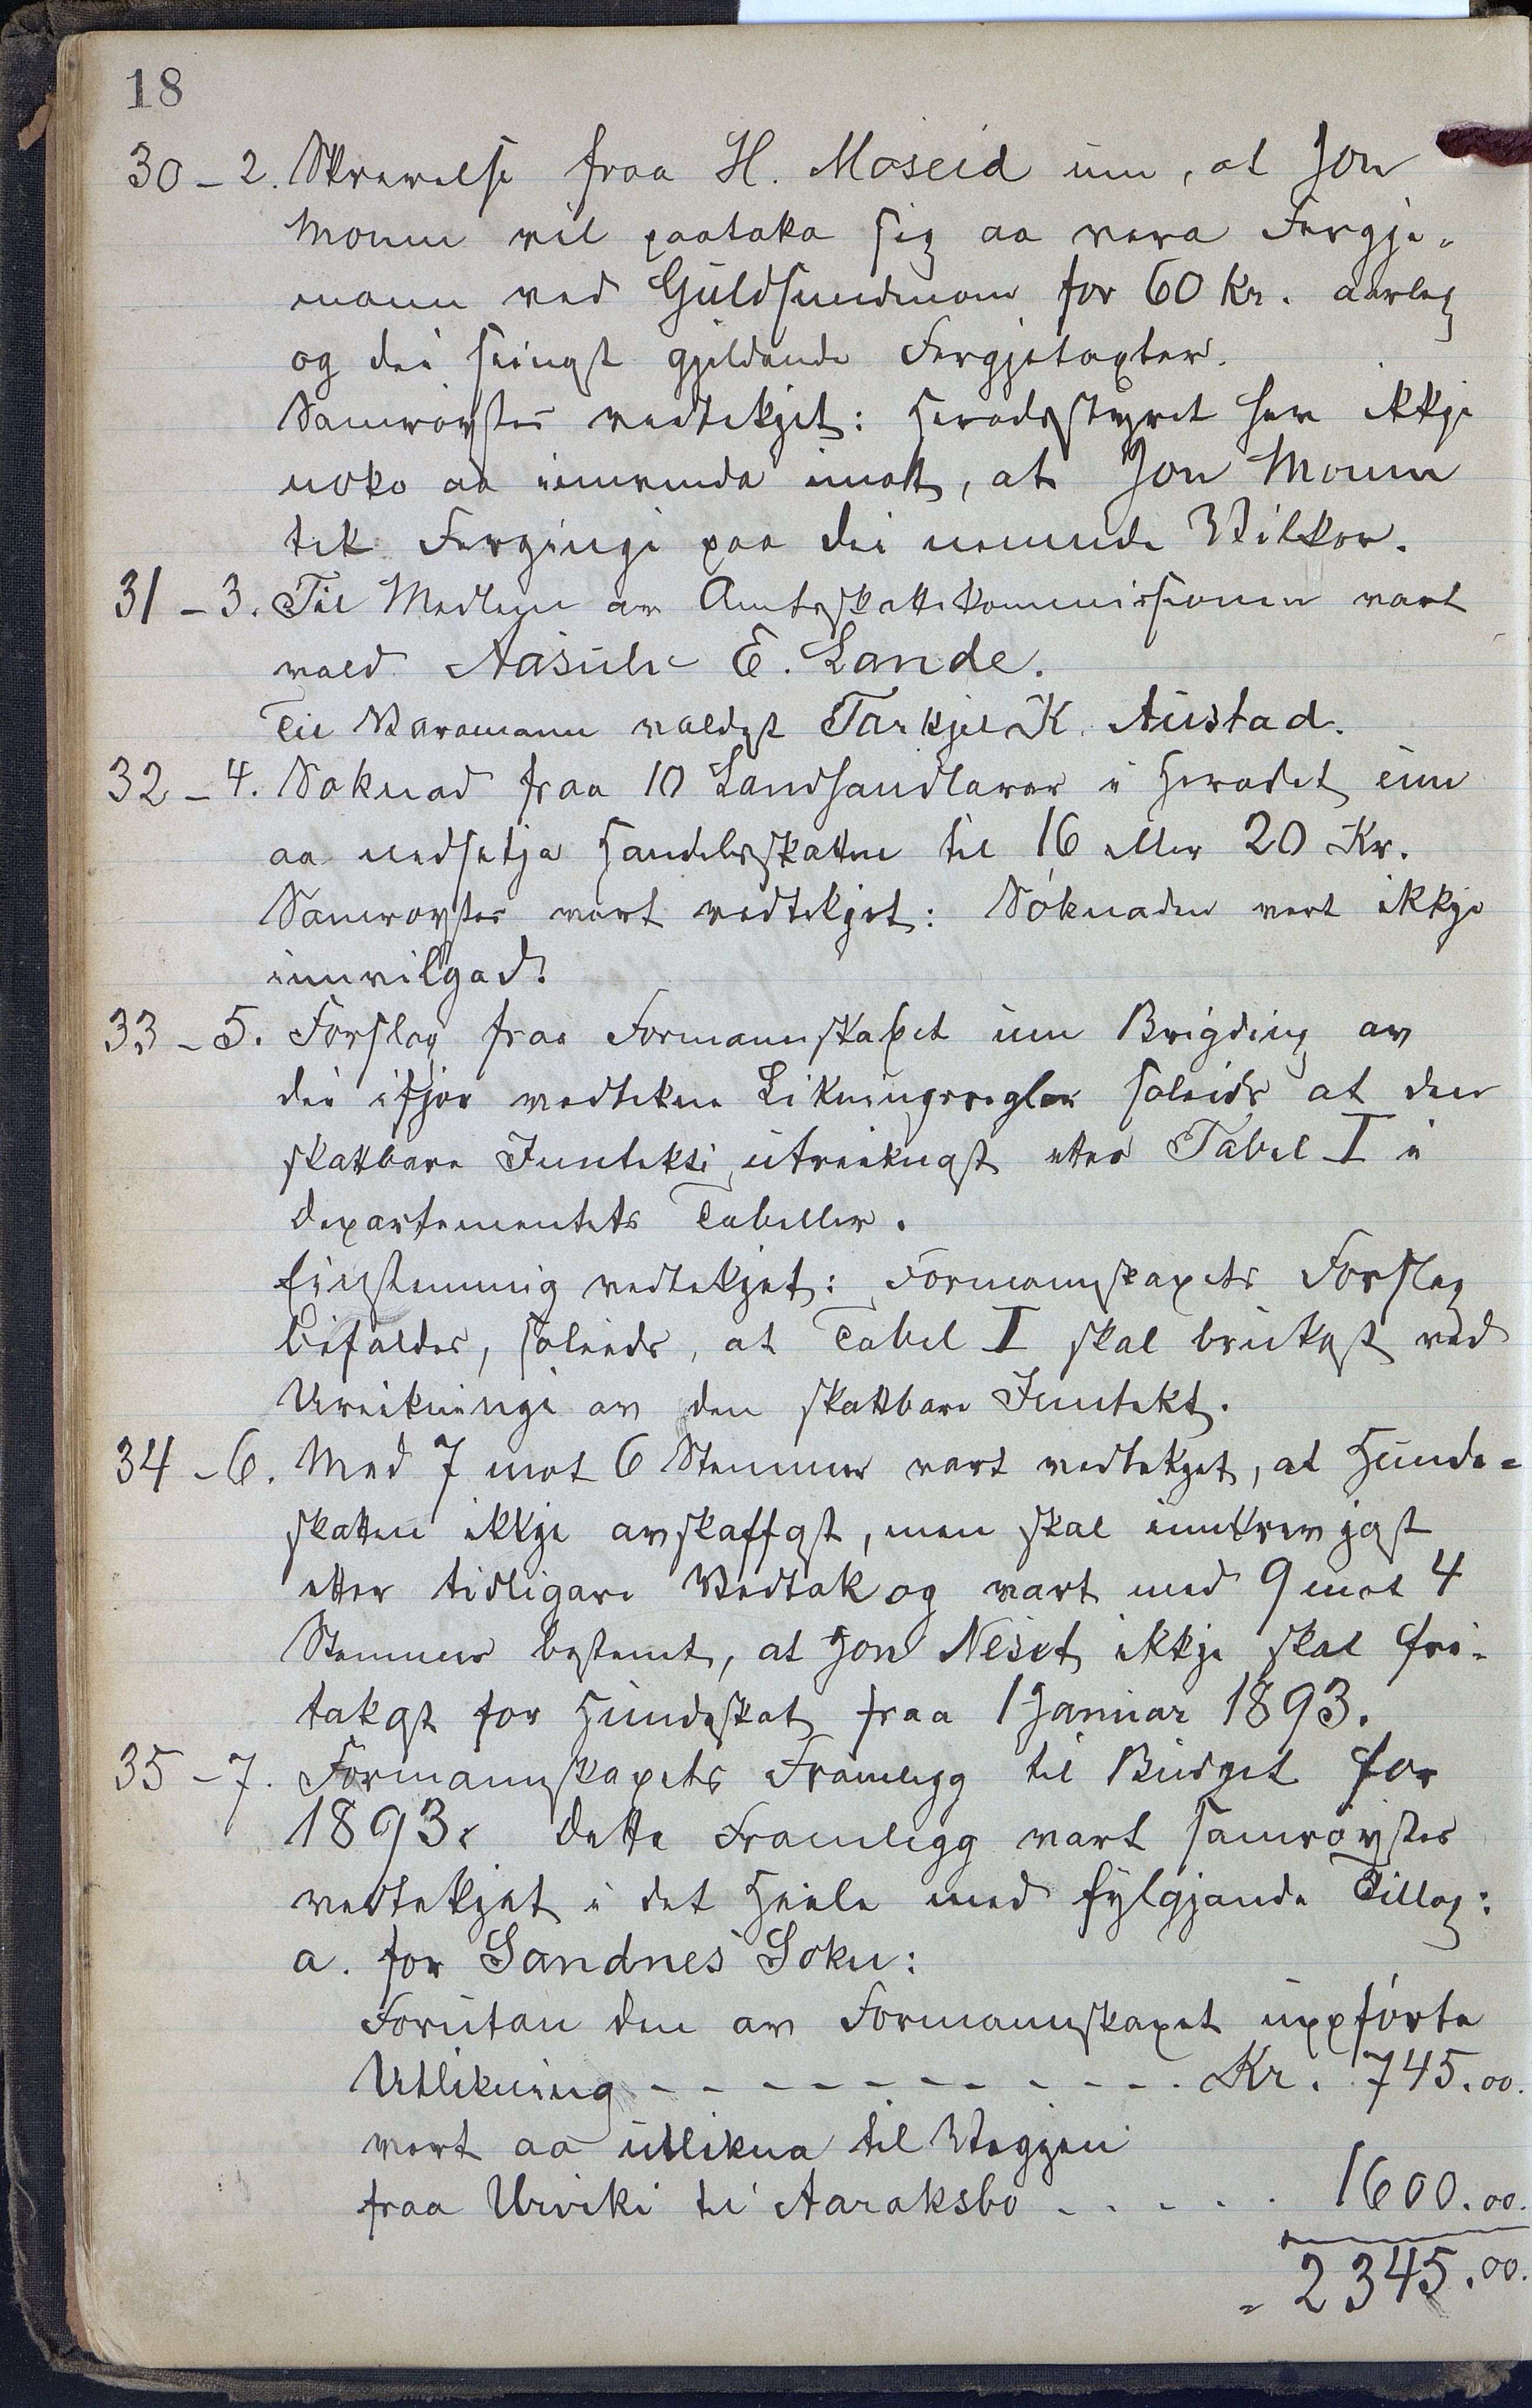 18
30 - 2. Skrivelse fraa H. Moseid um, at Jon
Monen vil paataka sig aa vera Fergje-
mann ved Guldsmedmoen for 60 Kr. aarleg
og dei seingst gjeldande Fergjetaxter.
Samrøystes vedtekjet: Heradsstyret hev ikkje
noko aa innvenda imott, at Jon Monen
tek Fergingi paa dei nemnde Vilkor.
31 - 3. Til Medlem av Amtsskattekommissionen vart
vald Aasulv E. Lande.
Til Varamann valdest Tarkjel K. Austad.
32 - 4. Soknad fraa 10 Landhandlarar i Heradet um
aa nedsetja Handelsskatten til 16 eller 20 Kr.
Samroystes vart vedtekjet: Søknaden vert ikkje
innvilgad.
33 - 5. Forslag fraa Formannskapet um Brigding av
dei ifjor vedtekne Likningsreglar soleids at den
skattbare Inntekti utreiknast etter Tabel I i
Departementets Tabeller.
Einstemmig vedtekjet: Formannskapets Forslag
bifaldes, soleids, at Tabel I skal brukast ved
Utreikningi av den skattbare Inntekt.
34 - 6. Med 7 mot 6 Stemmer vart vedtekjet, at Hunde-
skatten ikkje avskaffast, men skal innkrevjast
etter tidligare Vedtak og vart med 9 mot 4
Stemmer bestemt, at Jon Neset ikkje skal fri-
takast for Hundeskat fraa 1 Januar 1893.
35 - 7. Formannskapets Framlegg til Budget for
1893. Dette Framlegg vart samrøystes
vedtekjet i det Heile med fylgjande Tillæg:
a. for Sandnes Sokn:
Forutan den av Formannskapet uppførte
Utlikning - - - - - - - - - - - Kr. 745.00.
vert aa utlikna til Veggen
fraa Urviki til Aaraksbø - - - - - 1600.00.
= 2345.00.